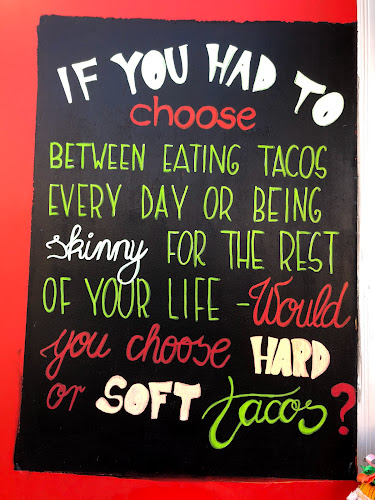 IF YOU HAD TO
choose
BETWEEN EATING TACOS
EVERY DAY OR BEING
skinny FOR THE REST
OF YOUR LIFE - Would
you choose HARD
or SOFT tacos?